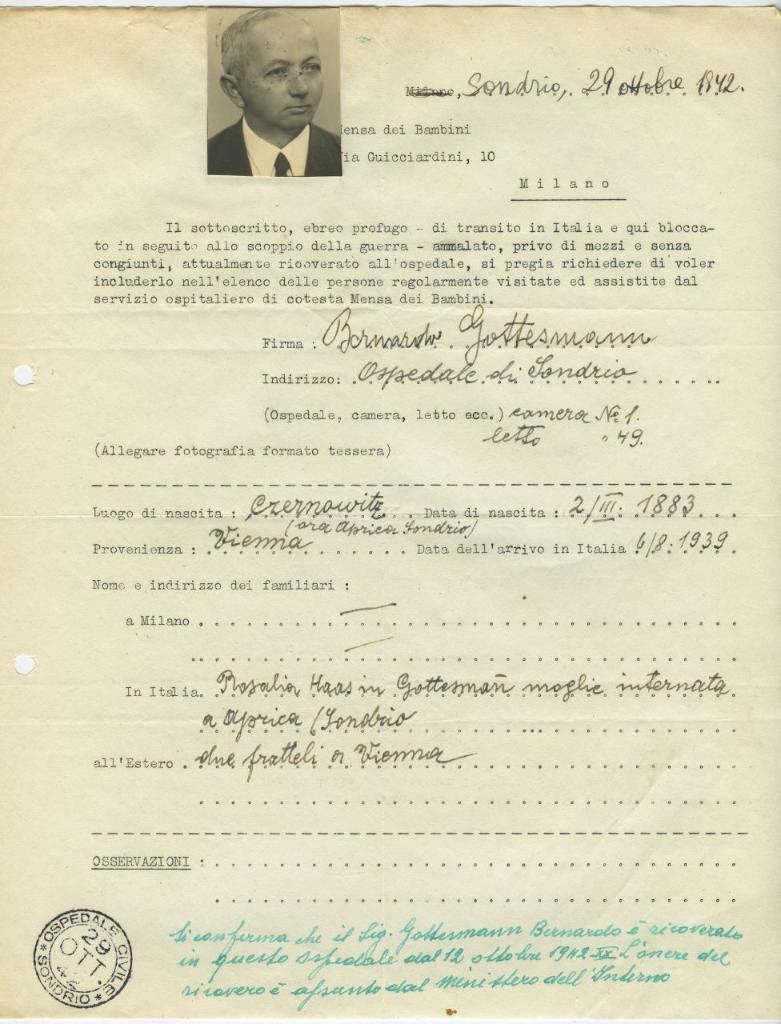 Milano, Sondrio, 29 ottobre 1942.
Mensa dei Bambini
Via Guicciardini, 10
Milano
Il sottoscritto, ebreo profugo - di transito in Italia e qui blocca-
to in seguito allo scoppio della guerra - ammalato, privo di mezzi e senza
congiunti, attualmente ricoverato all'ospedale, si pregia richiedere di voler
includerlo nell'elenco delle persone regolarmente visitate ed assistite dal
servizio ospitaliero di cotesta Mensa dei Bambini.
Firma : Bernardo Gottesmann
Indirizzo: Ospedale di Sondrio
(Ospedale, camera, letto ecc.) camera No 1.
letto " 49.
(Allegare fotografia formato tessera)
Luogo di nascita : Czernowitz Data di nascita : 2/III. 1883
(ora Aprica Sondrio)
Provenienza : Vienna Data dell'arrivo in Italia 6/8. 1939
Nome e indirizzo dei familiari :
a Milano
In Italia. Rosalia Haas in Gottesmañ moglie internata
a Aprica (Sondrio
all'Estero . due fratteli a Vienna
OSSERVAZIONI :
Si conferma che il Sig. Gottesmann Bernardo è ricoverato
in questo ospedale dal 12 ottobre 1942-XX L'onere del
ricovero è assunto dal ministero dell'Interno
OSPEDALE CIVILE
29
OTT
42
* SONDRIO *